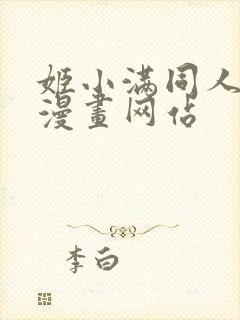 姬小满同人
漫畫网站
李白